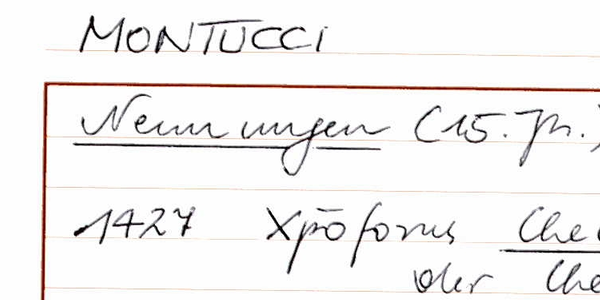 MONTUCCI
Nennungen (15. Jh.)
1427 Xpōforus Che
oder Che